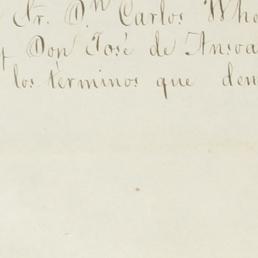 Sr. D.ⁿ Carlos Whe
y Don José de Ansoa
los términos que den